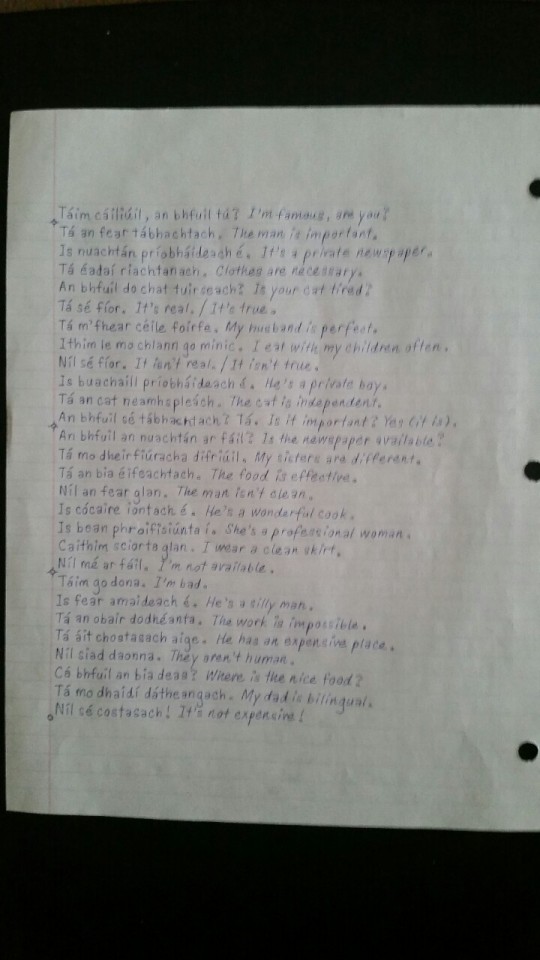 Táim cáiliúil, an bhfuil tú? I'm famous, are you?
Tá an fear tábhachtach. The man is important.
Is nuachtán príobháideach é. It's a private newspaper.
Tá éadaí riachtanach. Clothes are necessary.
An bhfuil do chat tuirseach? Is your cat tired?
Tá sé fíor. It's real. / It's true.
Tá m'fhear céile foirfe. My husband is perfect.
Ithim le mo chlann go minic. I eat with my children often.
Níl sé fíor. It isn't real. / It isn't true.
Is buachaill príobháideach é. He's a private boy.
Tá an cat neamhspleách. The cat is independent.
An bhfuil sé tábhachtach? Tá. Is it important? Yes (it is).
An bhfuil an nuachtán ar fáil? Is the newspaper available?
Tá mo dheirfiúracha difriúil. My sisters are different.
Tá an bia éifeachtach. The food is effective.
Níl an fear glan. The man isn't clean.
Is cócaire iontach é. He's a wonderful cook.
Is bean phroifisiúnta í. She's a professional woman.
Caithim sciorta glan. I wear a clean skirt.
Níl mé ar fáil. I'm not available.
Táim go dona. I'm bad.
Is fear amaideach é. He's a silly man.
Tá an obair dodhéanta. The work is impossible.
Tá áit chostasach aige. He has an expensive place.
Níl siad daonna. They aren't human.
Cá bhfuil an bia deas? Where is the nice food?
Tá mo dhaidí dátheangach. My dad is bilingual.
Níl sé costasach! It's not expensive!